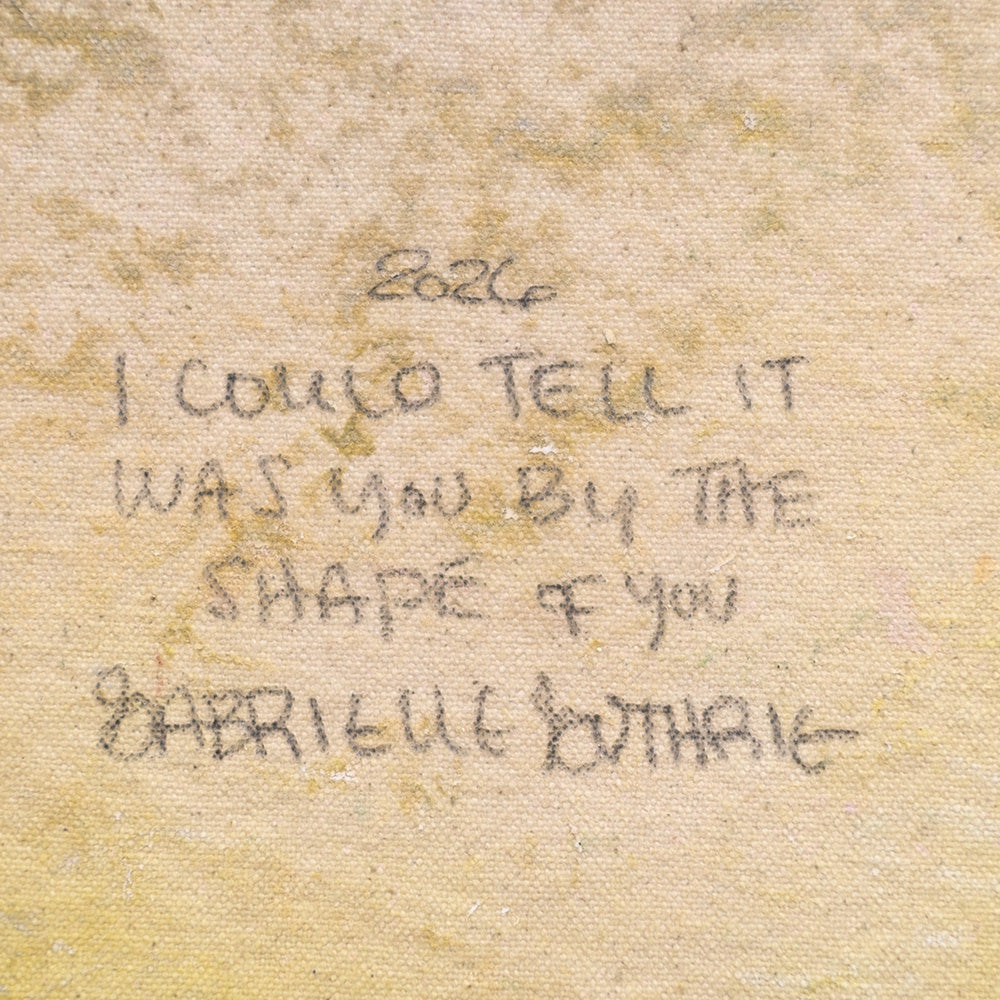 2026
I COULD TELL IT
WAS YOU BY THE
SHAPE OF YOU
GABRIELLE GUTHRIE